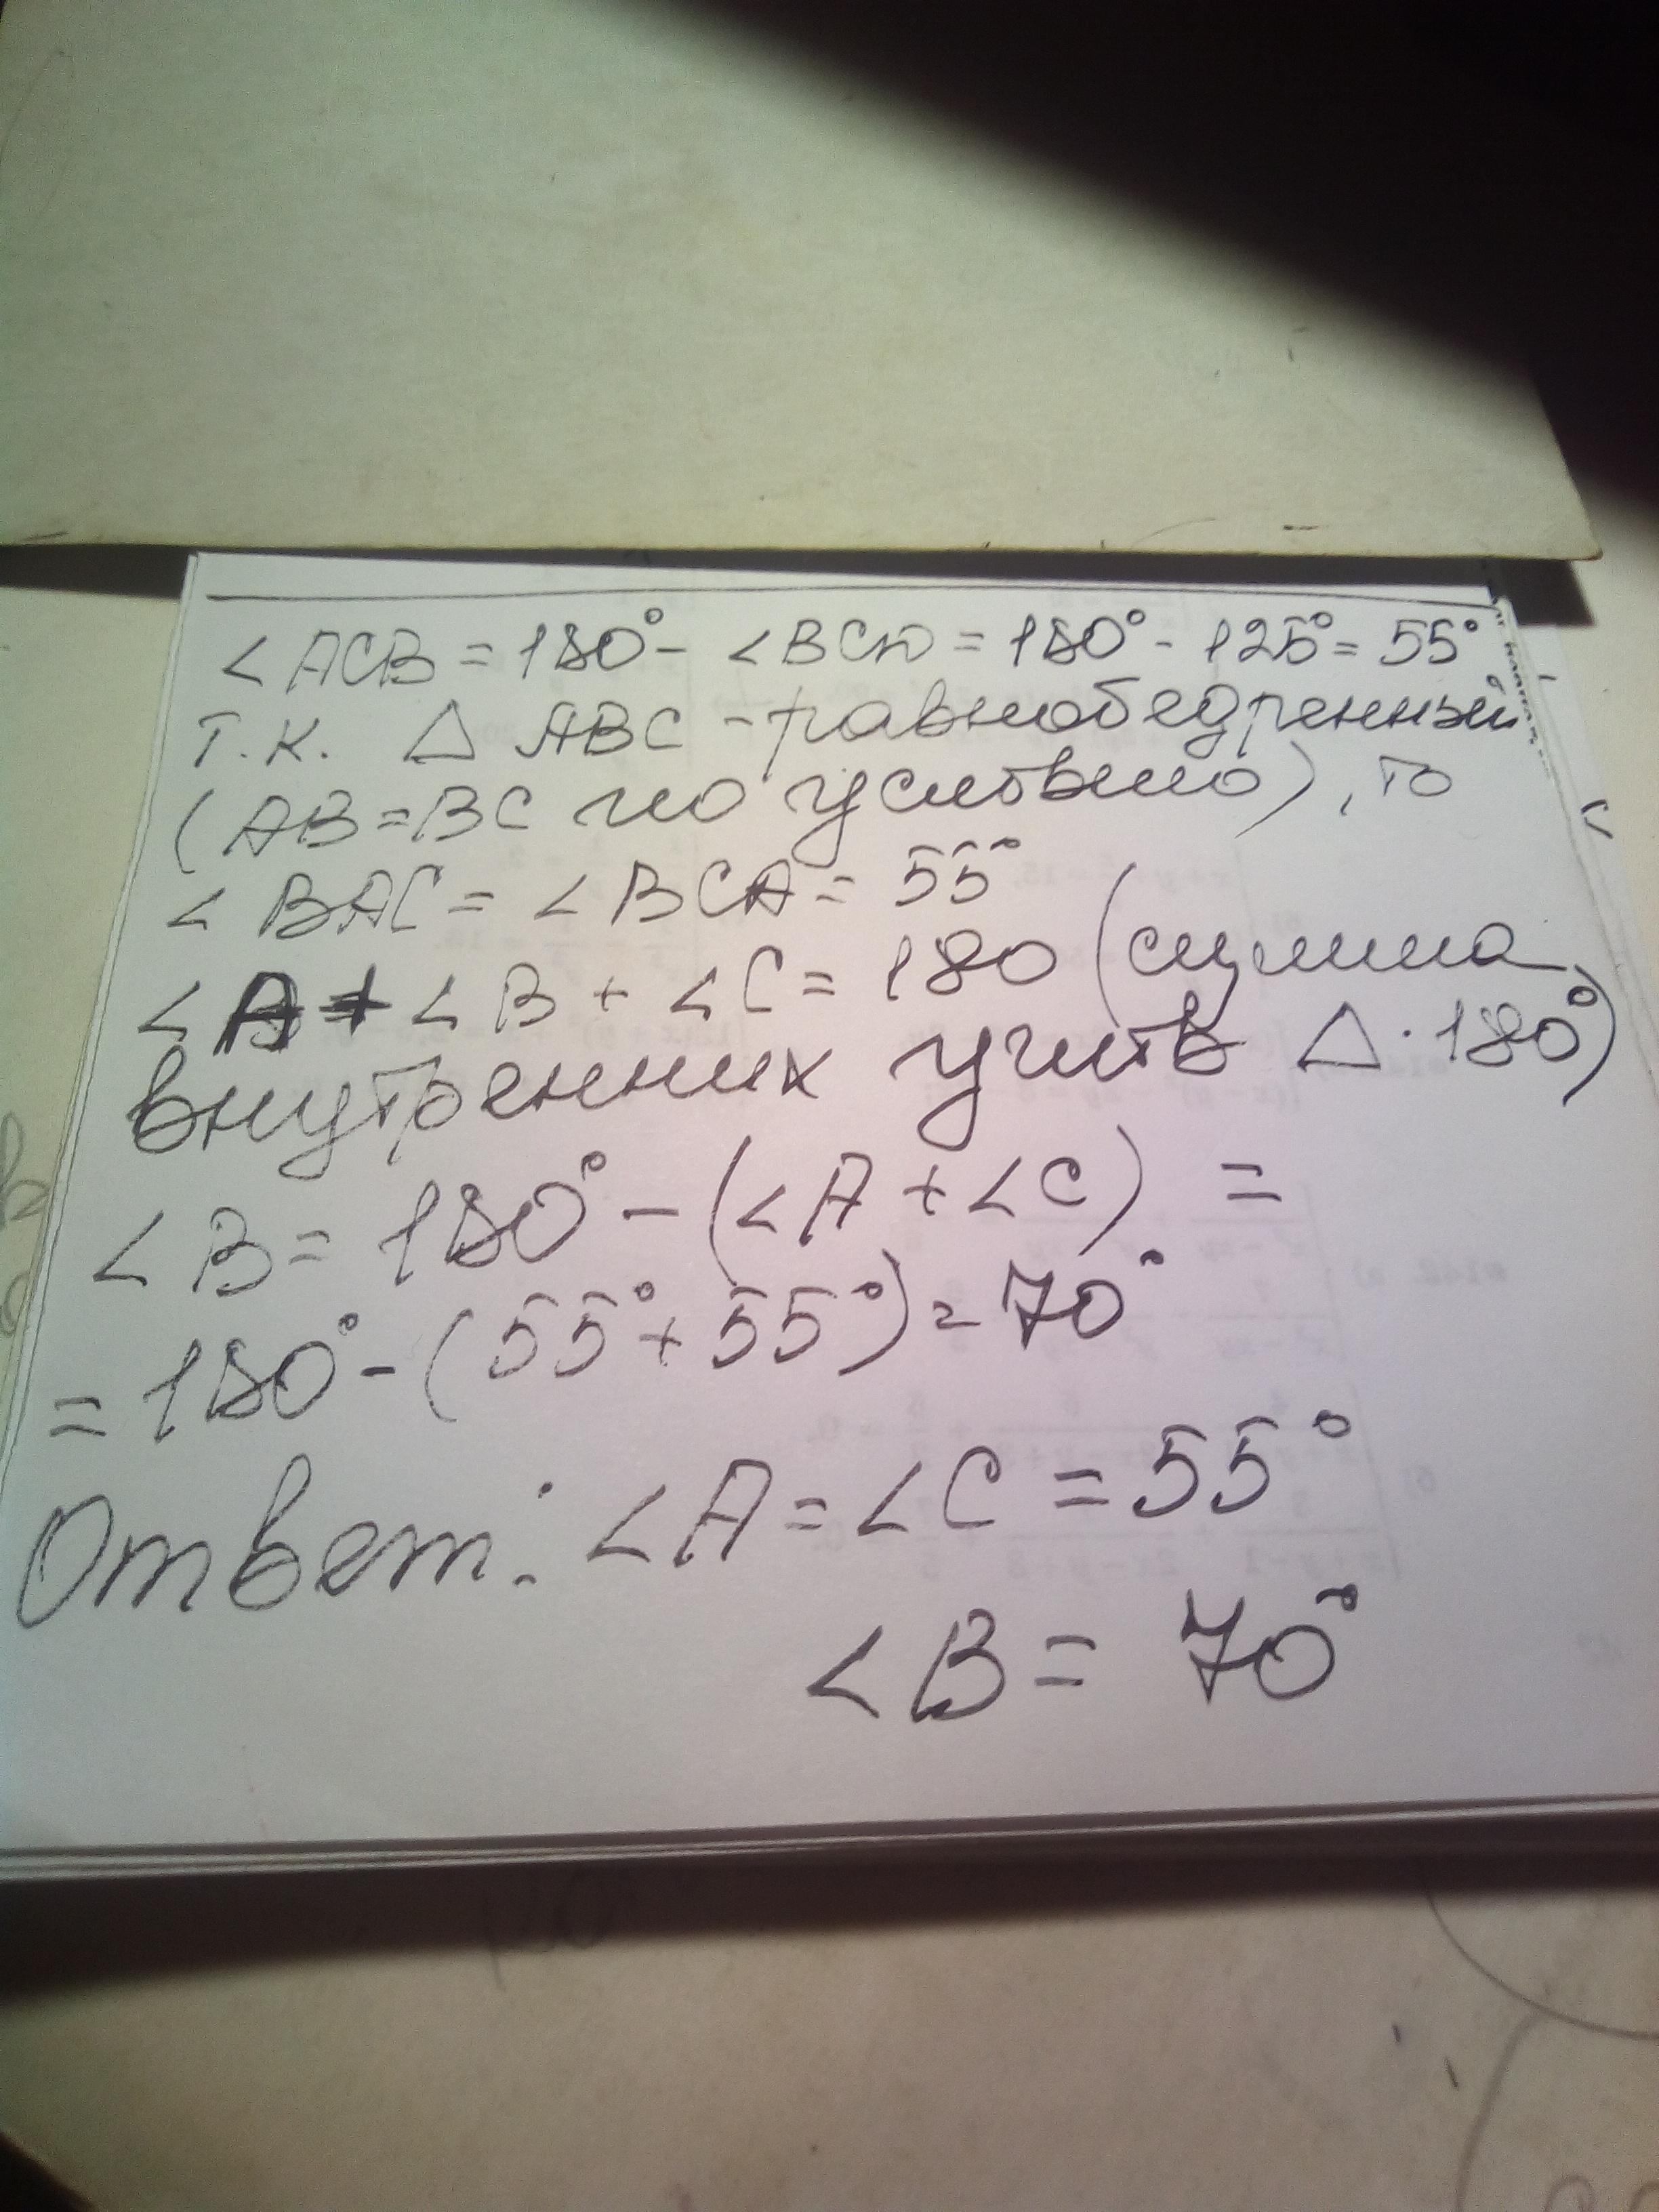 ∠ACB = 180° - ∠BCД = 180° - 125° = 55°
т.к. △ ABC - равнобедренный
(AB = BC по условию), то
∠BAC = ∠BCA = 55°
∠A + ∠B + ∠C = 180 (сумма
внутренних углов △ - 180°)
∠B = 180° - (∠A + ∠C) =
= 180° - (55° + 55°) = 70°
Ответ: ∠A = ∠C = 55°
∠B = 70°